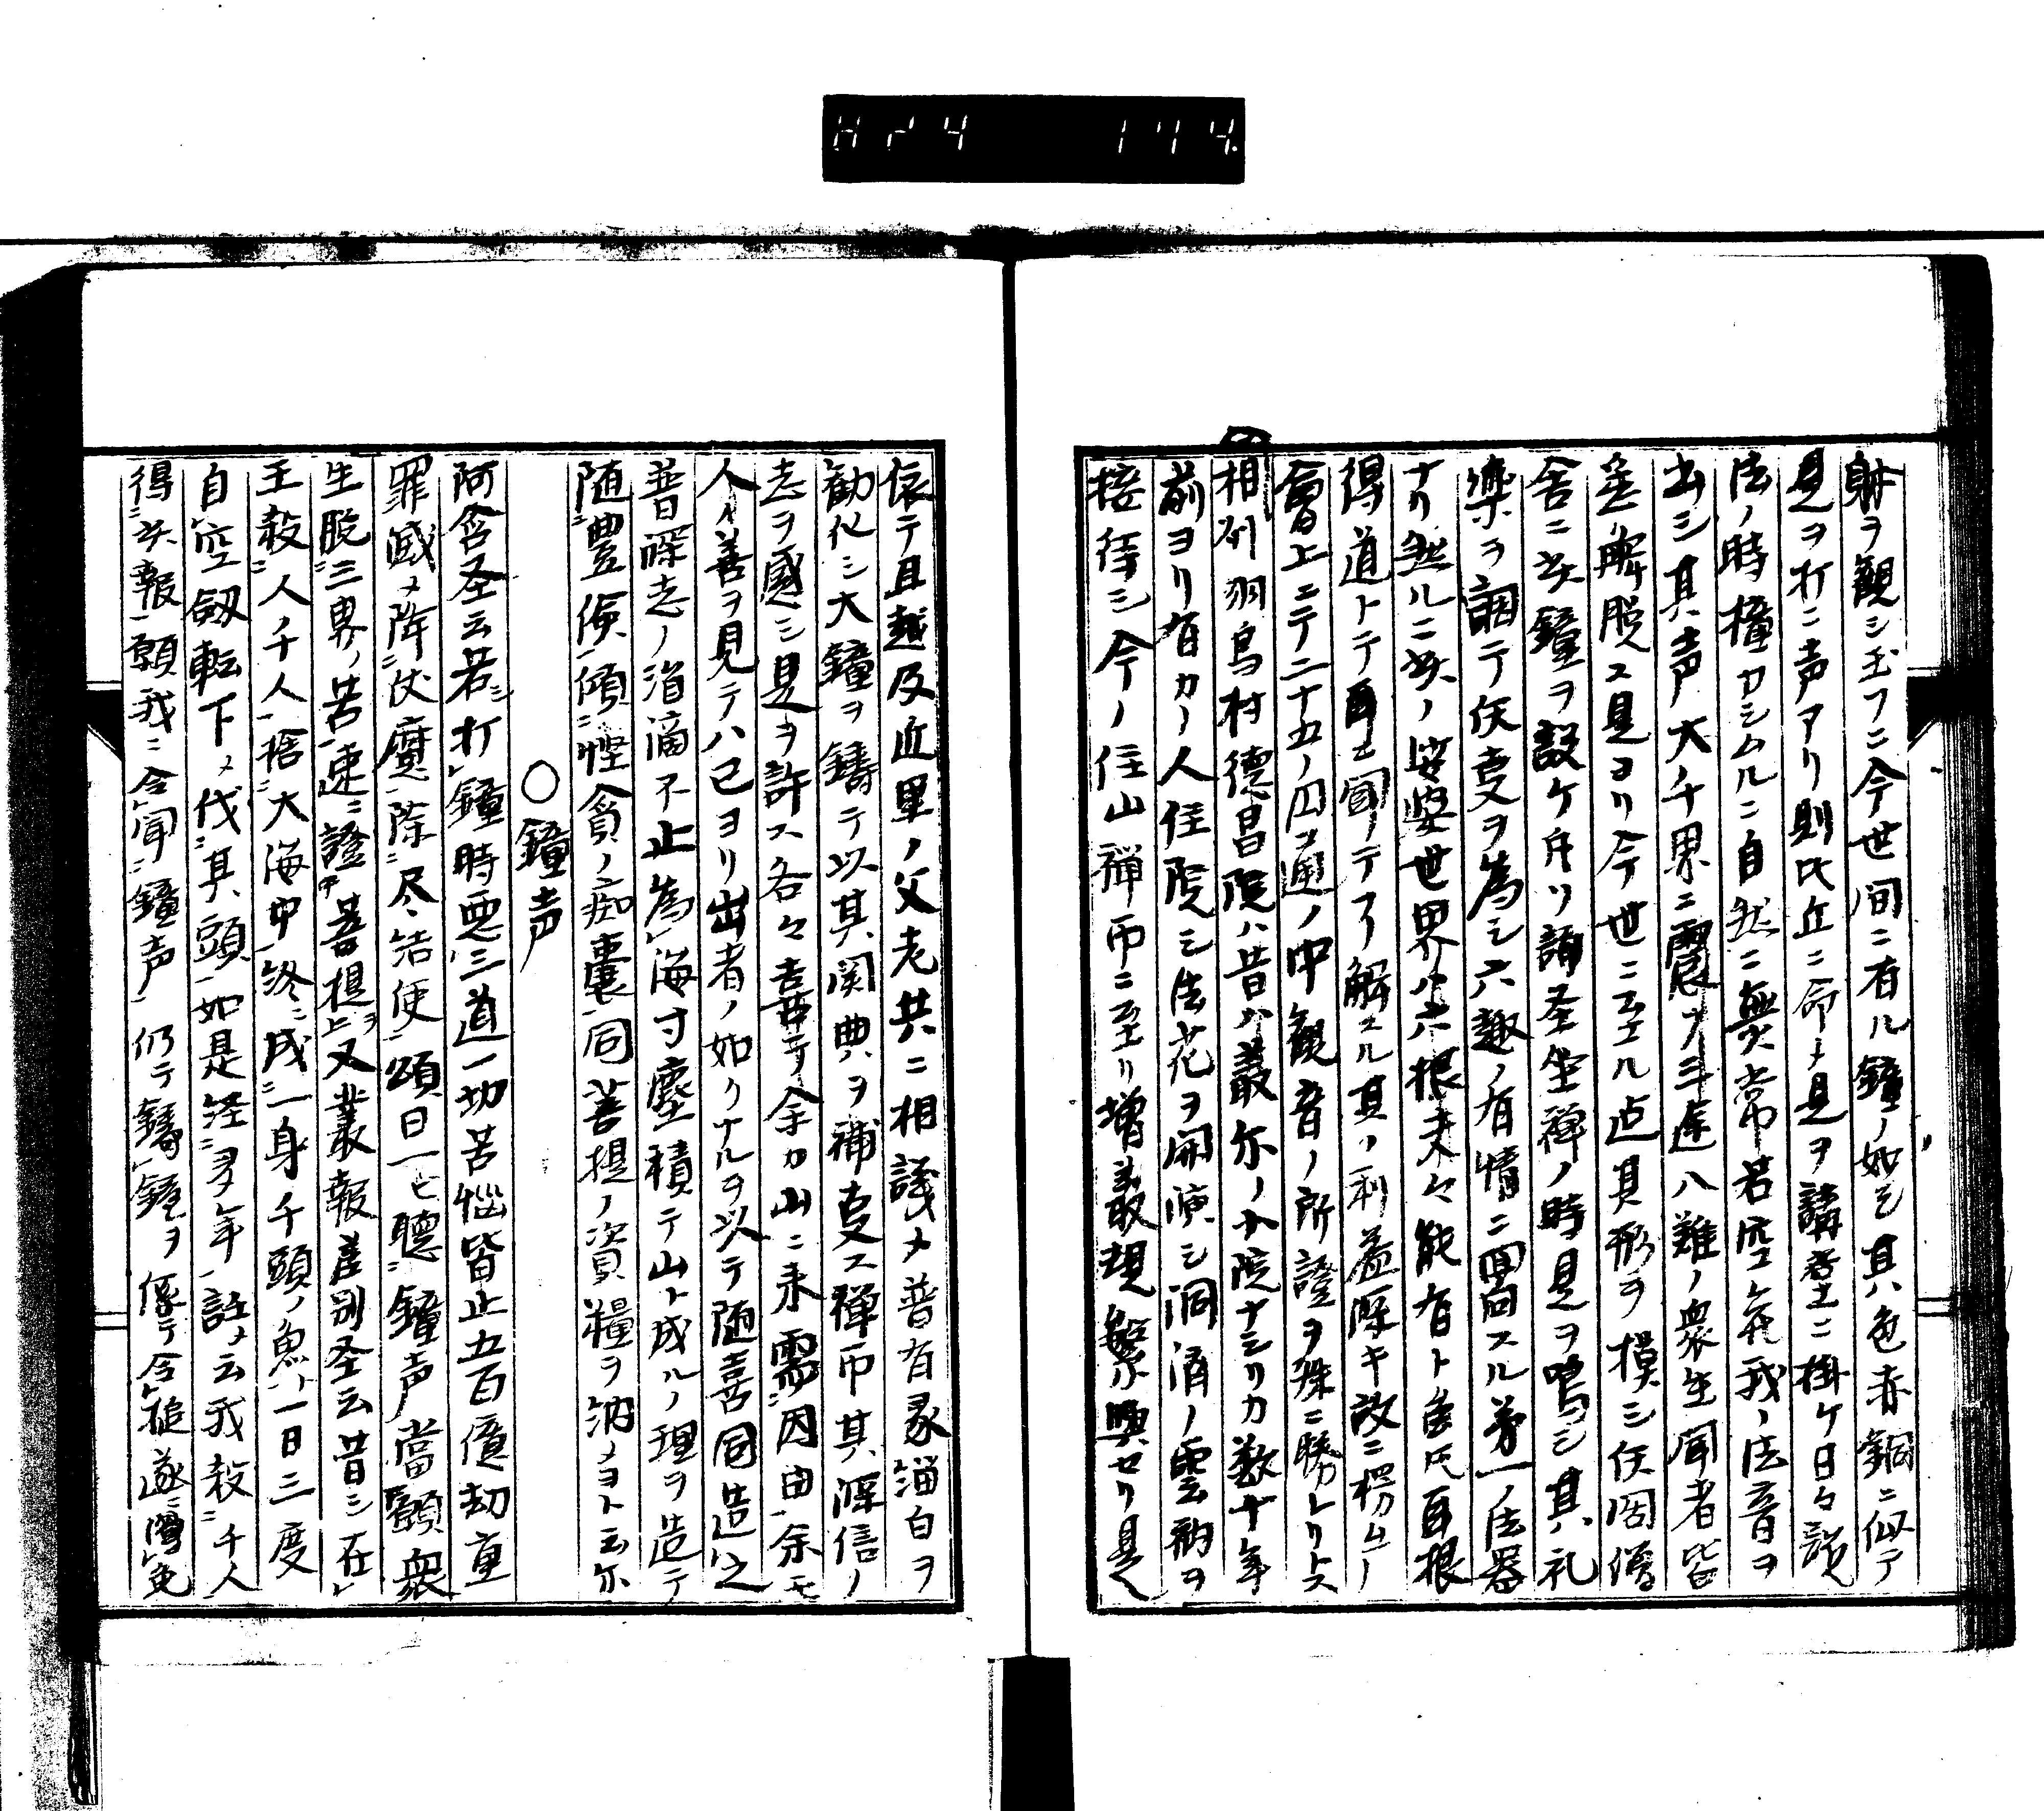 躰ヲ観シ玉フニ今世间ニ有ル鐘ノ如シ其ノ色赤銅ニ似テ
是ヲ打ニ声アリ則比丘ニ命メ是ヲ講堂ニ掛ケ日々説
法ノ時撞カシムルニ自然ニ無常苦空無我ノ法音ヲ
出シ其声大千界ニ震ヒ三途八難ノ衆生闻者皆
解脱ス是ヨリ今世ニ至ル迠其形ヲ摸シ仏阁僧
舎ニ必鐘ヲ設ケ誦圣坐禅ノ時是ヲ鳴シ其ノ礼
楽ヲ調テ仏叓ヲ為シ六趣ノ有情ニ回向スル第一ノ法器
ナリ然ルニ此ノ娑婆世界ハ六根夫々能有ト虽氏耳根
得道トテ耳ニ闻テ了解スル其ノ利益深キ故ニ楞厳
會上ニテ二十五ノ円通ノ中観音ノ所證ヲ殊ニ勝レリトス
相州羽鳥村德昌院ハ昔ハ叢尓ノ小院ナシリカ数十年
前ヨリ有カノ人住院シ法花ヲ開演シ洞済ノ雲衲ヲ
接待シ今ノ住山禅师ニ至リ増叢規繁興セリ是
依テ且越及近里ノ父老共ニ相議メ普有縁緇白ヲ
勧化シ大鐘ヲ鑄テ以其ノ闕典ヲ補叓ス禅师其深信ノ
志ヲ感シ是ヲ許ス各々喜悲テ余カ山ニ来需因由余モ
人ノ善ヲ見テハ己ヨリ出者ノ如クナルヲ以テ随喜同造之
普深志ノ涓滴不止為海寸塵積テ山ト成ルノ理ヲ造テ
随豊倹傾慳貪ノ痴嚢同菩提ノ資糧ヲ納メヨト云尓
〇鐘声
阿含圣云若シ打鐘時悪三道一切苦悩皆止五百億劫重
罪滅メ降伏魔除尽结使頌曰一ヒ聴鐘声當願衆
生脱三界ノ苦速ニ證中菩提上ヲ又業報差別圣云昔シ在
王殺人ノ千人捨大海中終ニ成一身千頭ノ魚ト一日三度
自空劔転下メ伐其頭如是経多年註メ云我殺千人
得此報願我ニ令闻鐘声仍テ鑄鐘ヲ係テ令槌遂得免